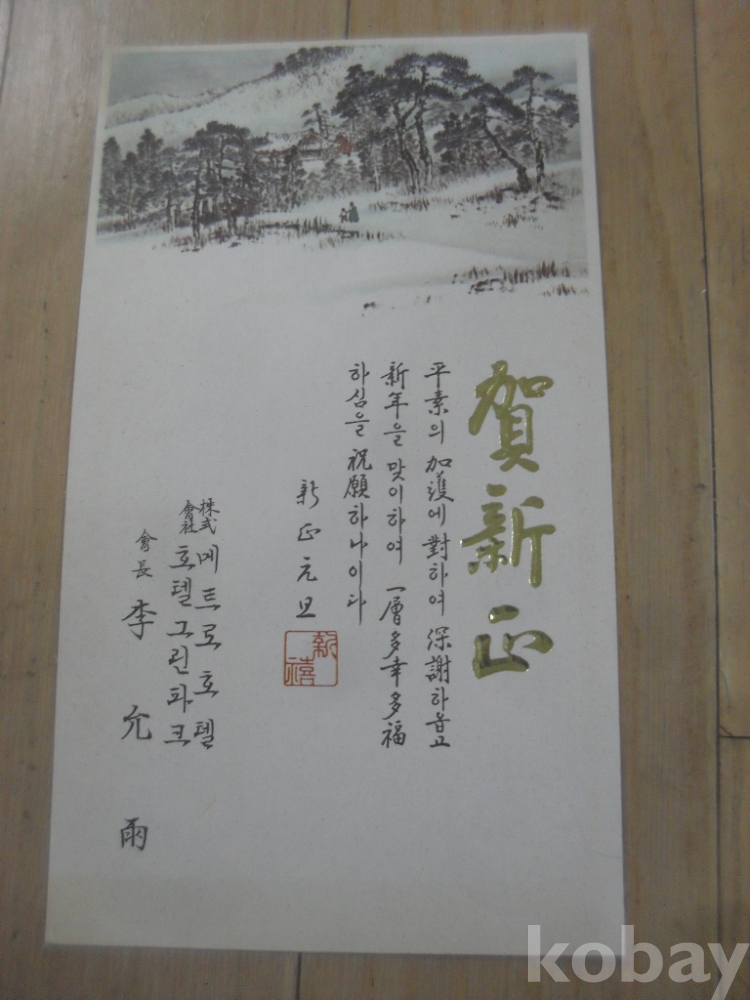 賀新正
平素의 加護에 對하여 深謝하옵고
新年을 맞이하여 一層多幸多福
하심을 祝願하나이다
新正元旦
新禧
株式會社 메트로호텔
호텔그린파크
會長 李允雨
kobay